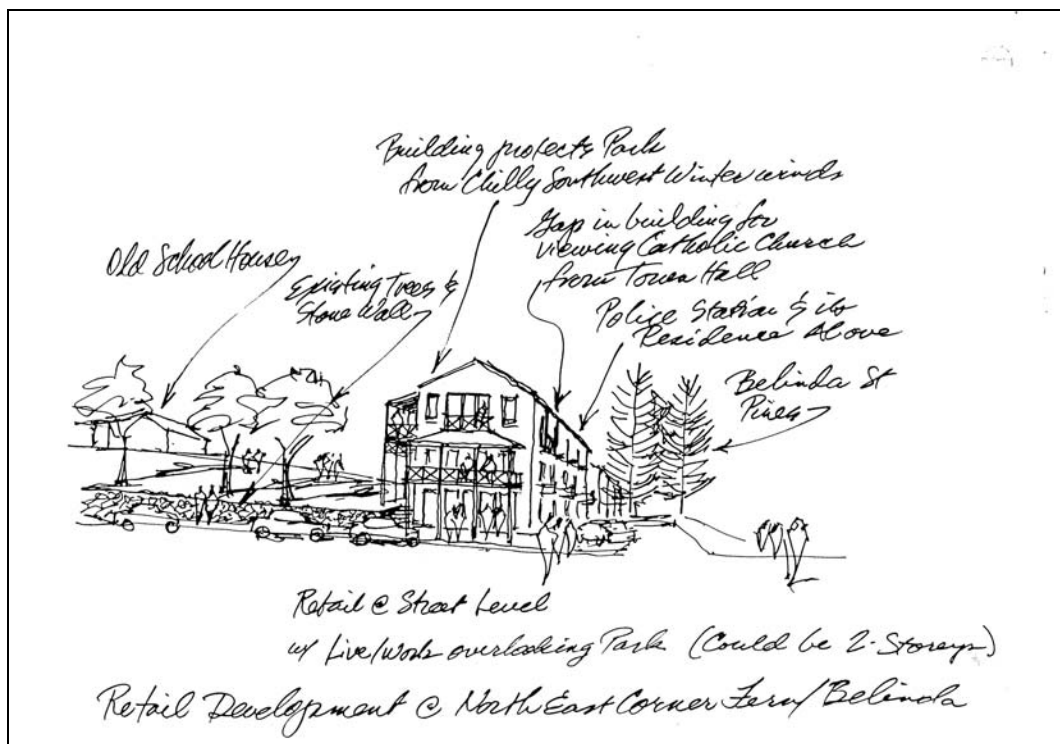 Building protects Park
from Chilly Southwest Winter winds
Gap in building for
viewing Catholic Church
from Town Hall
Old School House
Existing Trees &
Stone Wall
Police Station & its
Residence Above
Belinda St
Pines
Retail @ Street Level
w/ Live/Work overlooking Park (Could be 2-Storeys)
Retail Development @ North East Corner Fern/Belinda